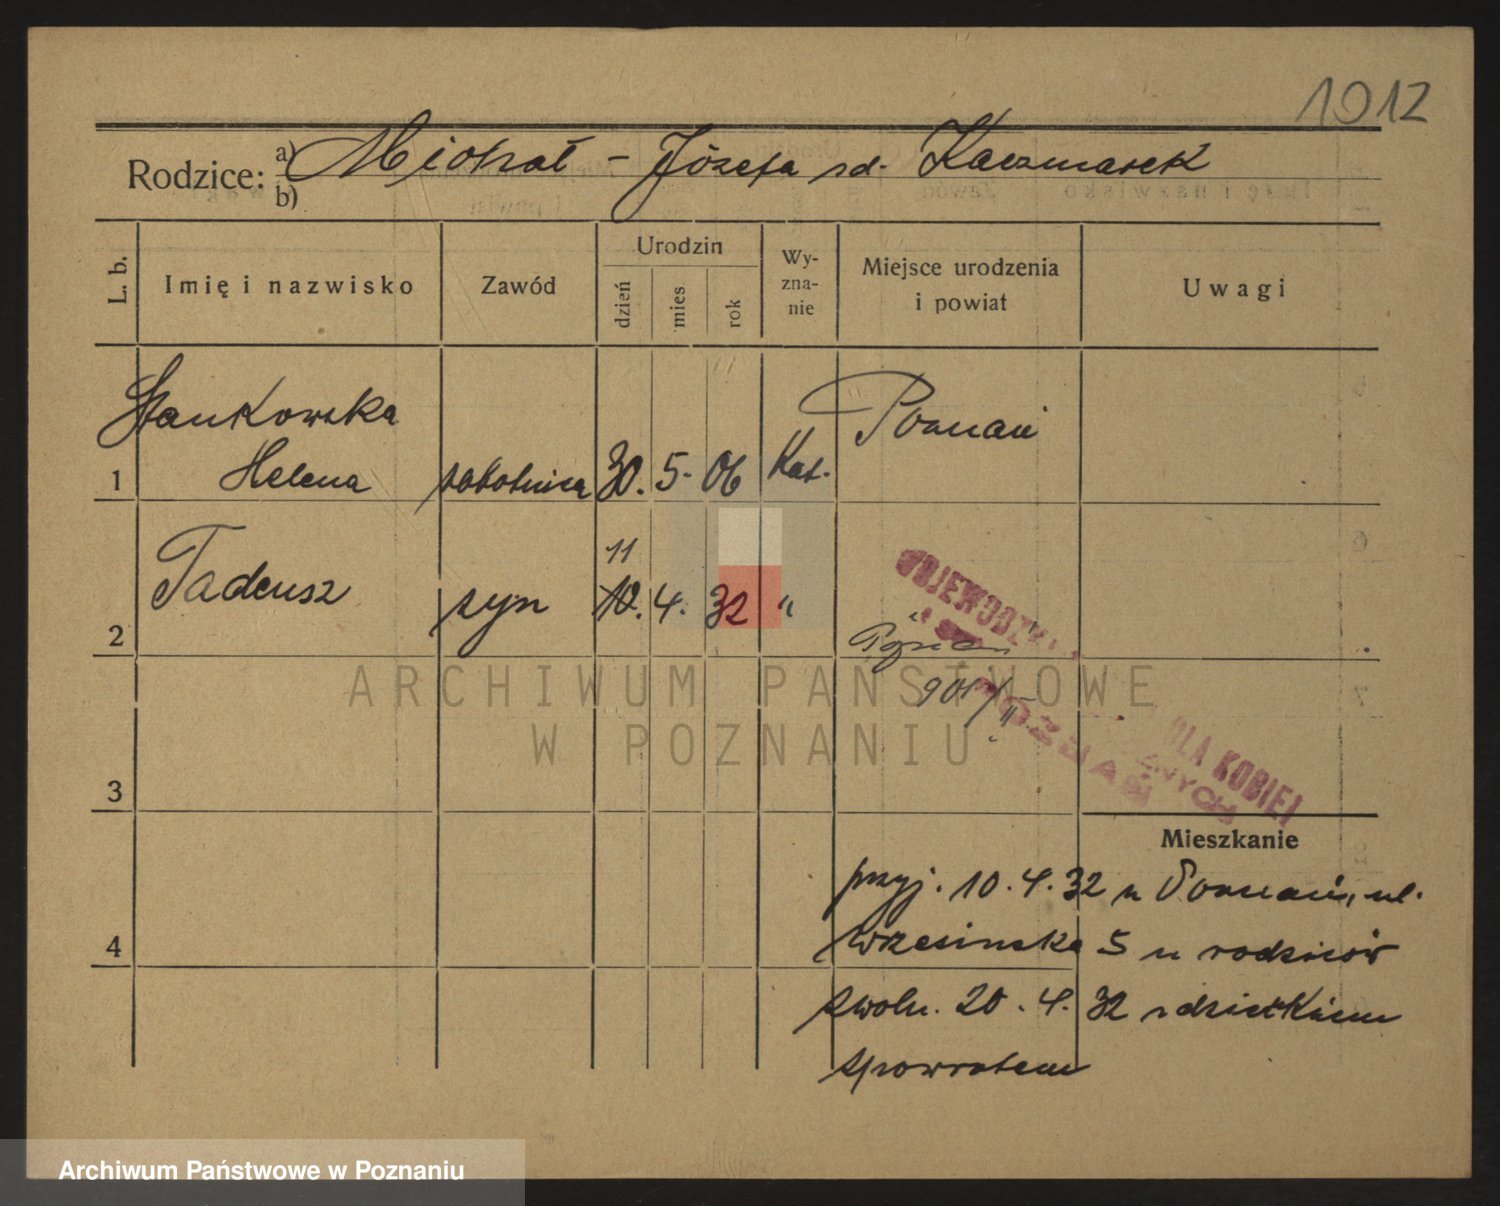 1912
Rodzice: a) Michał - Józefa zd. Kaczmarek
b)
L. b.
Imię i nazwisko
Zawód
Urodzin
dzień
mies
rok
Wy-
zna-
nie
Miejsce urodzenia
i powiat
Uwagi
Stankowska
1 Helena robotnica 30. 5. 06 Kat. Poznań
11
2 Tadeusz syn 10. 4. 32 " "
Poznań
901/II
WOJEWÓDZKA
DLA KOBIET
POZNAŃ
ARCHIWUM PAŃSTWOWE
W POZNANIU
3
Mieszkanie
przyj. 10.4.32 z Poznania, ul.
4 Wrzesińska 5 u rodziców
zwoln. 20.4.32 z dzieckiem
zpowrotem
Archiwum Państwowe w Poznaniu